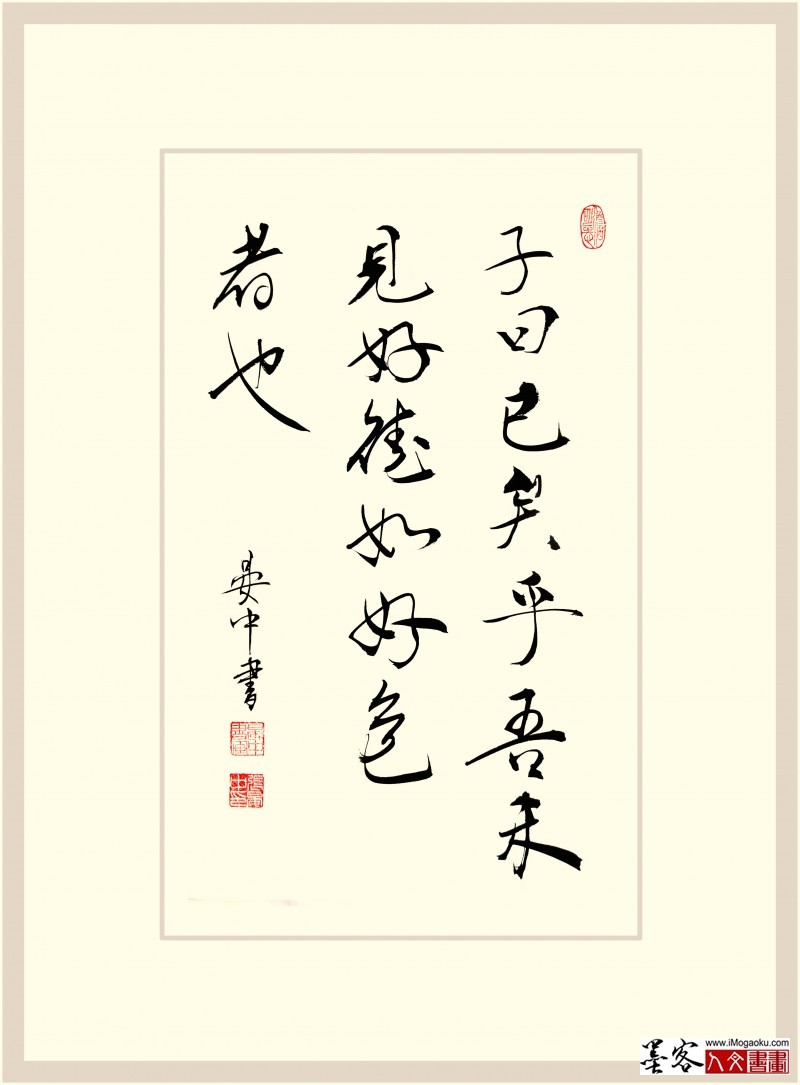 子曰已矣乎吾未
見好德如好色
者也
晏中書
墨客
www.iMogaoku.com
人文書畫